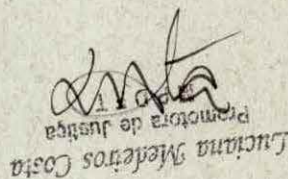 Luciana Medeiros Costa
Promotora de Justiça